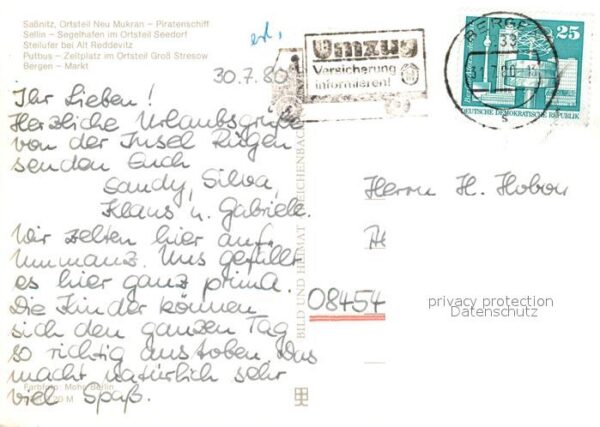 Saßnitz, Ortsteil Neu Mukran – Piratenschiff
Sellin – Segelhafen im Ortsteil Seedorf
Steilufer bei Alt Reddevitz
Putbus – Zeltplatz im Ortsteil Groß Stresow
Bergen – Markt
erl.
30.7.80
Ihr Lieben!
Herzliche Urlaubsgrüße
von der Insel Rügen
senden Euch
Sandy, Silva,
Klaus u. Gabriele.
Wir zelten hier auf
Ummanz. Uns gefällt
es hier ganz prima.
Die Kinder können
sich den ganzen Tag
so richtig austoben. Das
macht natürlich sehr
viel Spaß.
Farbfoto: Mohr, Berlin
20 M
BILD UND HEIMAT REICHENBACH
Umzug
Versicherung
informieren!
BERGEN
33
25
DEUTSCHE DEMOKRATISCHE REPUBLIK
Herrn H. Hobow
08454
privacy protection
Datenschutz